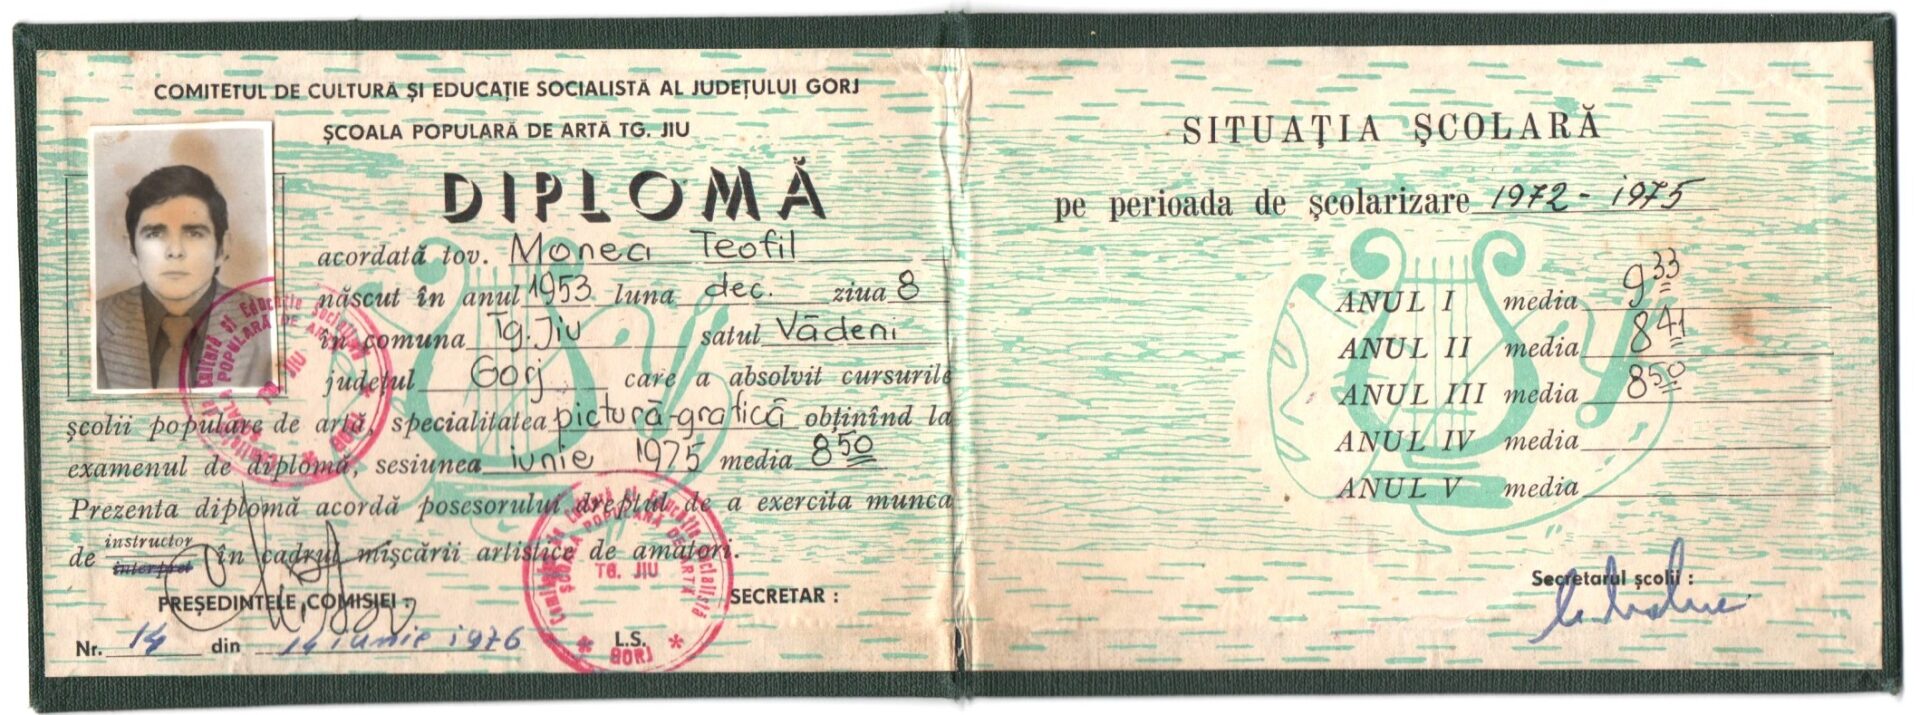 COMITETUL DE CULTURĂ ȘI EDUCAȚIE SOCIALISTĂ AL JUDEȚULUI GORJ
ȘCOALA POPULARĂ DE ARTĂ TG. JIU
DIPLOMĂ
acordată tov. Monea Teofil
născut în anul 1953 luna dec. ziua 8
în comuna Tg. Jiu satul Vădeni
județul Gorj care a absolvit cursurile
școlii populare de artă, specialitatea pictură-grafică obținînd la
examenul de diplomă, sesiunea iunie 1975 media 8 50
Prezenta diplomă acordă posesorului dreptul de a exercita munca
de instructor interpret în cadrul mișcării artistice de amatori.
PREȘEDINTELE COMISIEI :
SECRETAR :
Nr. 14 din 14 iunie 1976
L.S.
ȘCOALA POPULARĂ DE ARTĂ
TG. JIU
GORJ
ȘCOALA POPULARĂ DE ARTĂ
TG. JIU
GORJ
SITUAȚIA ȘCOLARĂ
pe perioada de școlarizare 1972 - 1975
ANUL I media 9 33
ANUL II media 8 41
ANUL III media 8 50
ANUL IV media
ANUL V media
Secretarul școlii :